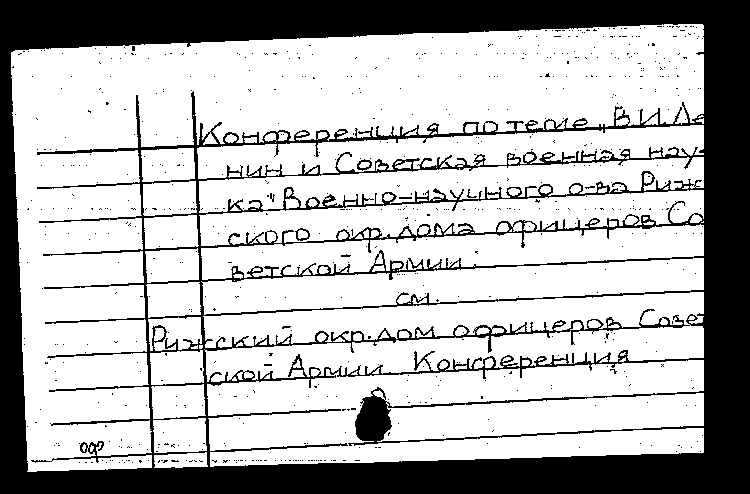 Конференция по теме „В.И.Ле
нин и Советская военная нау-
ка" Военно-научного о-ва Рижс
ского окр.дома офицеров Со
ветской Армии.
см.
Рижский окр.дом офицеров Совет
ской Армии Конференция